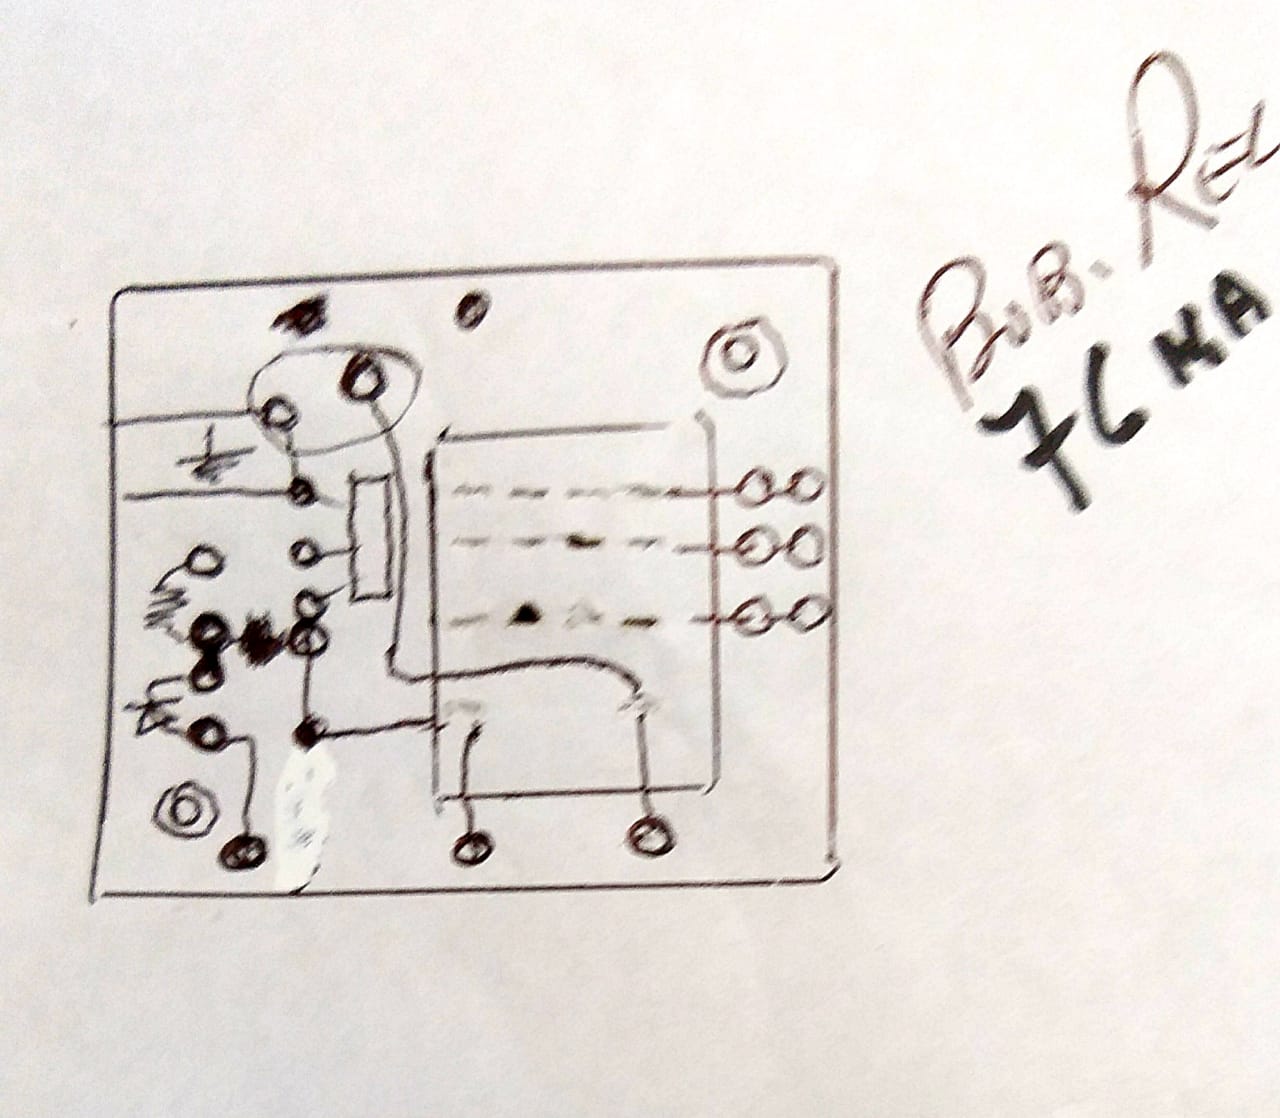 BOB. REL
76 KA